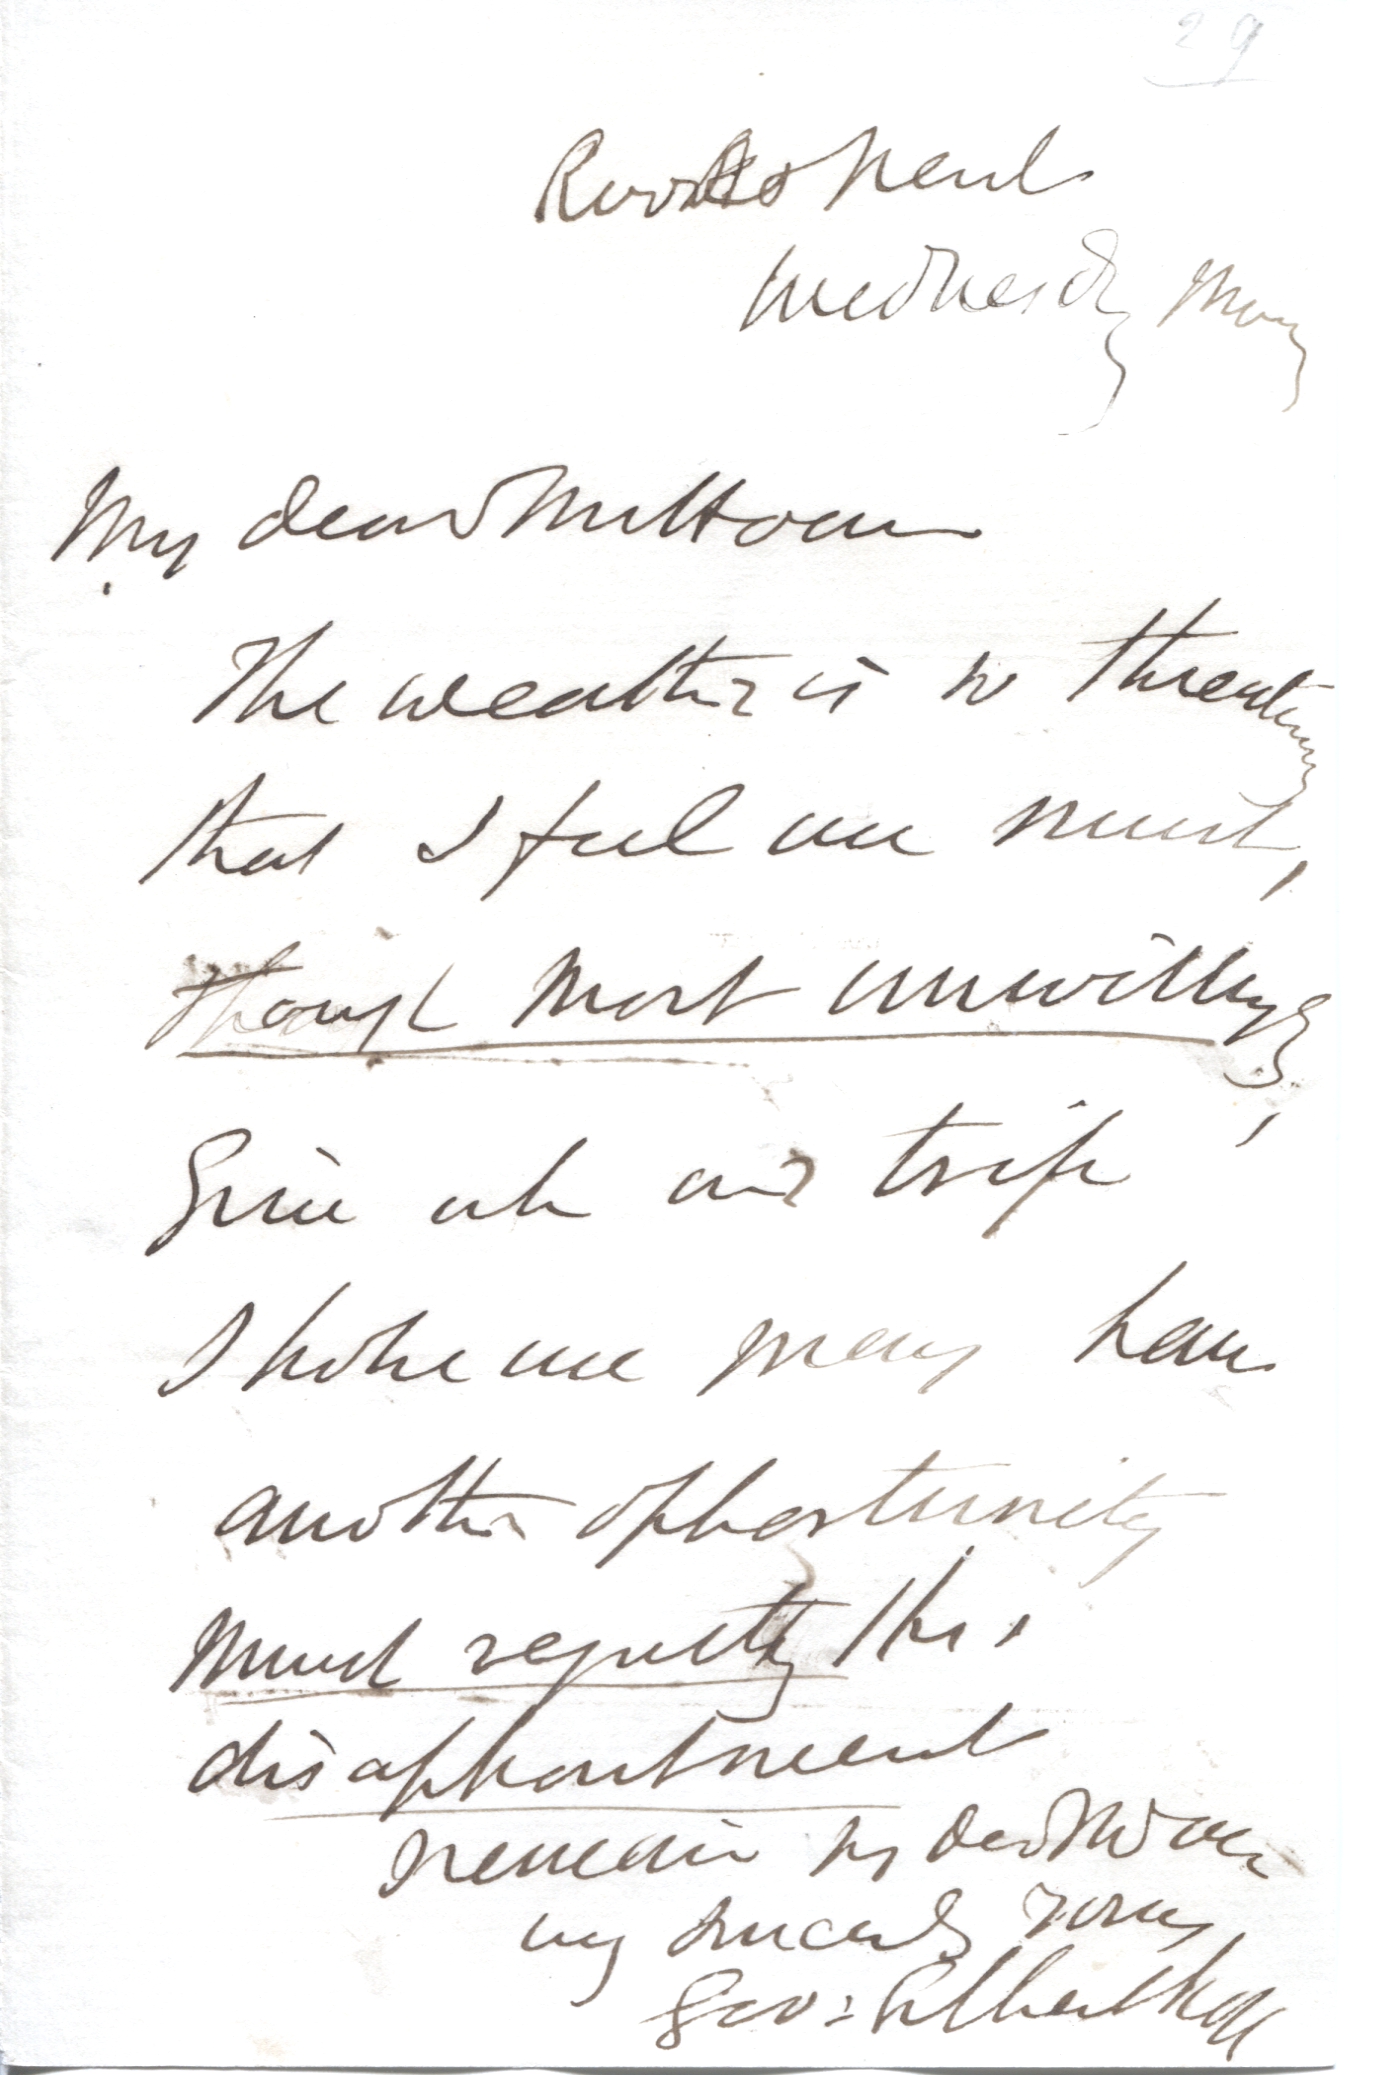 29
Rooksnest
Wednesday Morg
My dear Milman
The weather is so threatening
that I feel we must,
though most unwillingly,
Give up our trip
I hope we may have
another opportunity
Much regretting this
disappointment
I remain my dear Milman
very sincerely yours
Geo: Gilbert Scott